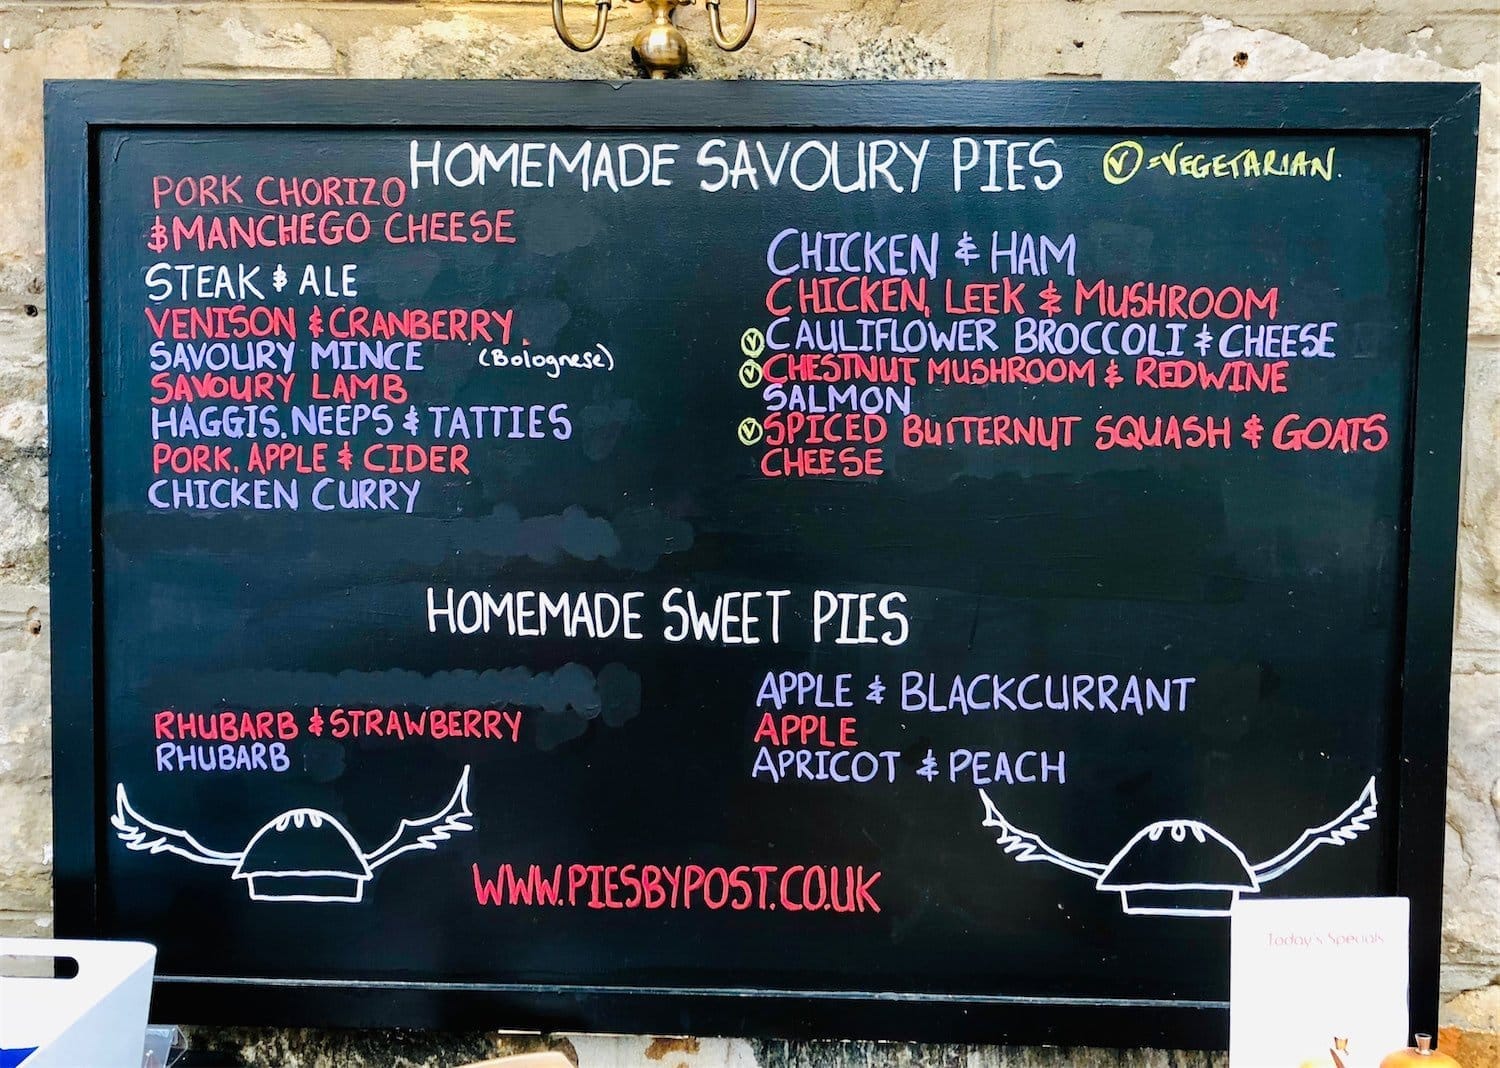 HOMEMADE SAVOURY PIES
Ⓥ=VEGETARIAN.
PORK CHORIZO
& MANCHEGO CHEESE
STEAK & ALE
VENISON & CRANBERRY.
SAVOURY MINCE (Bolognese)
SAVOURY LAMB
HAGGIS, NEEPS & TATTIES
PORK, APPLE & CIDER
CHICKEN CURRY
CHICKEN & HAM
CHICKEN, LEEK & MUSHROOM
Ⓥ CAULIFLOWER BROCCOLI & CHEESE
Ⓥ CHESTNUT MUSHROOM & REDWINE
SALMON
Ⓥ SPICED BUTTERNUT SQUASH & GOATS
CHEESE
HOMEMADE SWEET PIES
RHUBARB & STRAWBERRY
RHUBARB
APPLE & BLACKCURRANT
APPLE
APRICOT & PEACH
WWW.PIESBYPOST.CO.UK
Today's Specials